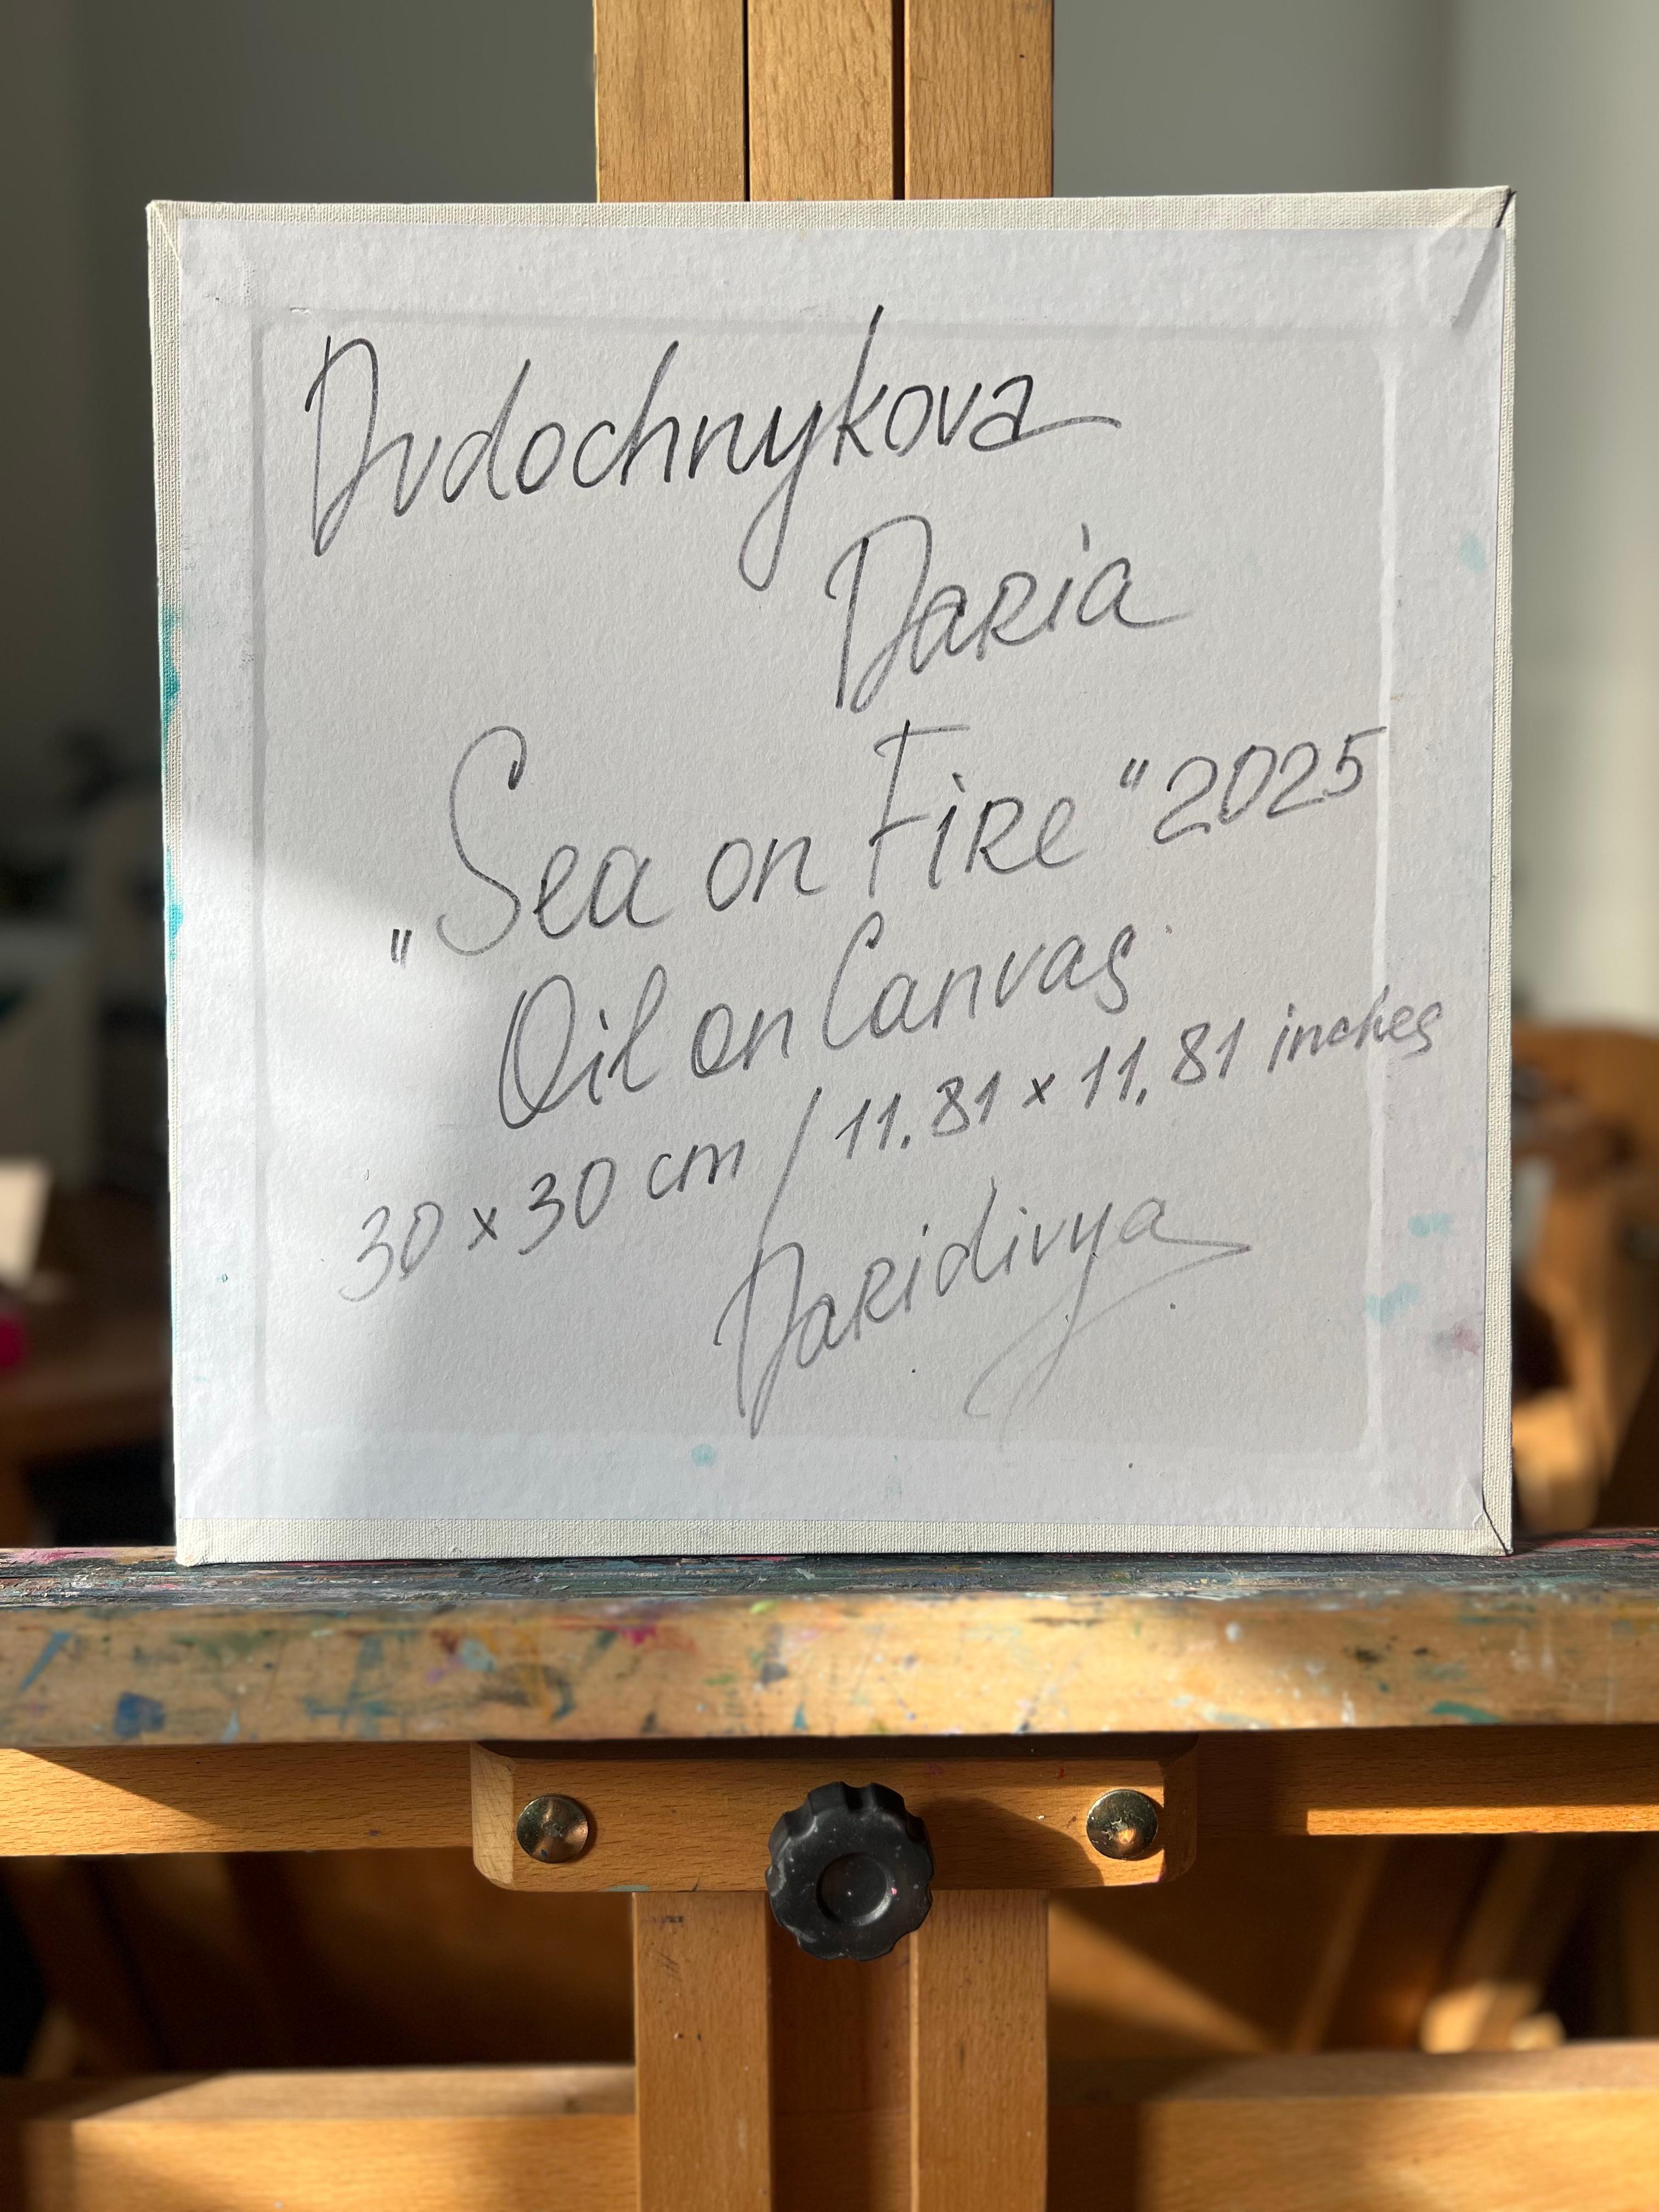 Dudochnykova
Daria
„Sea on Fire" 2025
Oil on Canvas
30 x 30 cm / 11.81 x 11.81 inches
Daridivya